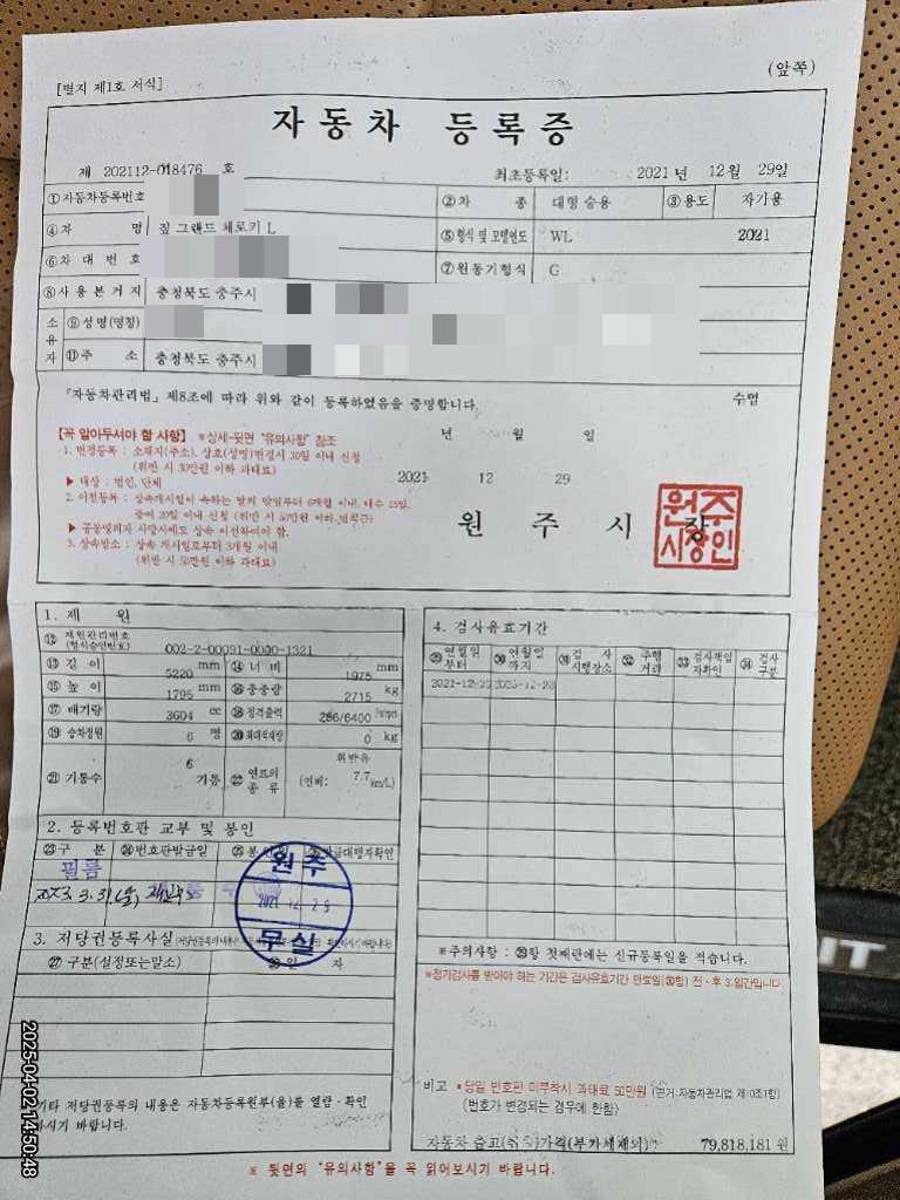 (앞쪽)
[별지 제1호 서식]
자동차 등록증
제 202112-018476 호 최초등록일: 2021년 12월 29일
①자동차등록번호 ②차 종 대형 승용 ③용도 자가용
④차 명 짚 그랜드 체로키 L ⑤형식 및 모델연도 WL 2021
⑥차대번호 ⑦원동기형식 G
⑧사용본거지 충청북도 충주시
소유자 ⑨성명(명칭)
⑪주 소 충청북도 충주시
「자동차관리법」 제8조에 따라 위와 같이 등록하였음을 증명합니다.
년 월 일
【꼭 알아두셔야 할 사항】 ※상세-뒷면 "유의사항" 참조
1. 변경등록 : 소재지(주소), 상호(성명)변경시 30일 이내 신청
(위반 시 30만원 이하 과태료)
▶ 대상 : 법인, 단체
2021 12 29
2. 이전등록 : 상속개시일이 속하는 달의 말일부터 6개월 이내, 매수 15일,
증여 20일 이내 신청 (위반 시 50만원 이하
▶ 공동명의자 사망시에도 상속 이전하여야 함.
3. 상속말소 : 상속 개시일로부터 3개월 이내
(위반 시 50만원 이하 과태료)
원 주 시 장
원주
시장인
1. 제 원
⑫ 제원관리번호 (형식승인번호) 002-2-00091-0000-1321
⑬길 이 5220 mm ⑭너 비 1975 mm
⑮높 이 1795 mm ⑯총중량 2715 kg
⑰배기량 3604 cc ⑱정격출력 286/6400
⑲승차정원 6 명 ⑳최대적재량 0 kg
㉑기통수 6 기통 ㉒연료의 종류 휘발유 (연비: 7.7 km/L)
2. 등록번호판 교부 및 봉인
㉓구 분 ㉔번호판발급일 ㉕봉 발급대행자확인
필름
2023. 3. 31
원주
2021 12 29
무실
3. 저당권등록사실
㉗구분(설정또는말소) ㉘일 자
기타 저당권등록의 내용은 자동차등록원부(을)를 열람·확인
하시기 바랍니다.
4. 검사유효기간
㉙연월일 부터 ㉚연월일 까지 ㉛검 사 시행장소 ㉜주행 거리 ㉝검사책임 자확인 ㉞검사 구분
2021-12-29 2025-12-28
※주의사항 : ㉙항 첫째란에는 신규등록일을 적습니다.
※정기검사를 받아야 하는 기간은 검사유효기간 만료일(㉚항) 전·후 31일간입니다
비고 ※당일 번호판 미부착시 과태료 50만원 (근거:자동차관리법 제10조1항)
(번호가 변경되는 경우에 한함)
자동차 출고(취득)가격(부가세제외) : 79,818,181 원
※ 뒷면의 "유의사항"을 꼭 읽어보시기 바랍니다.
2025-04-02 14:50:48